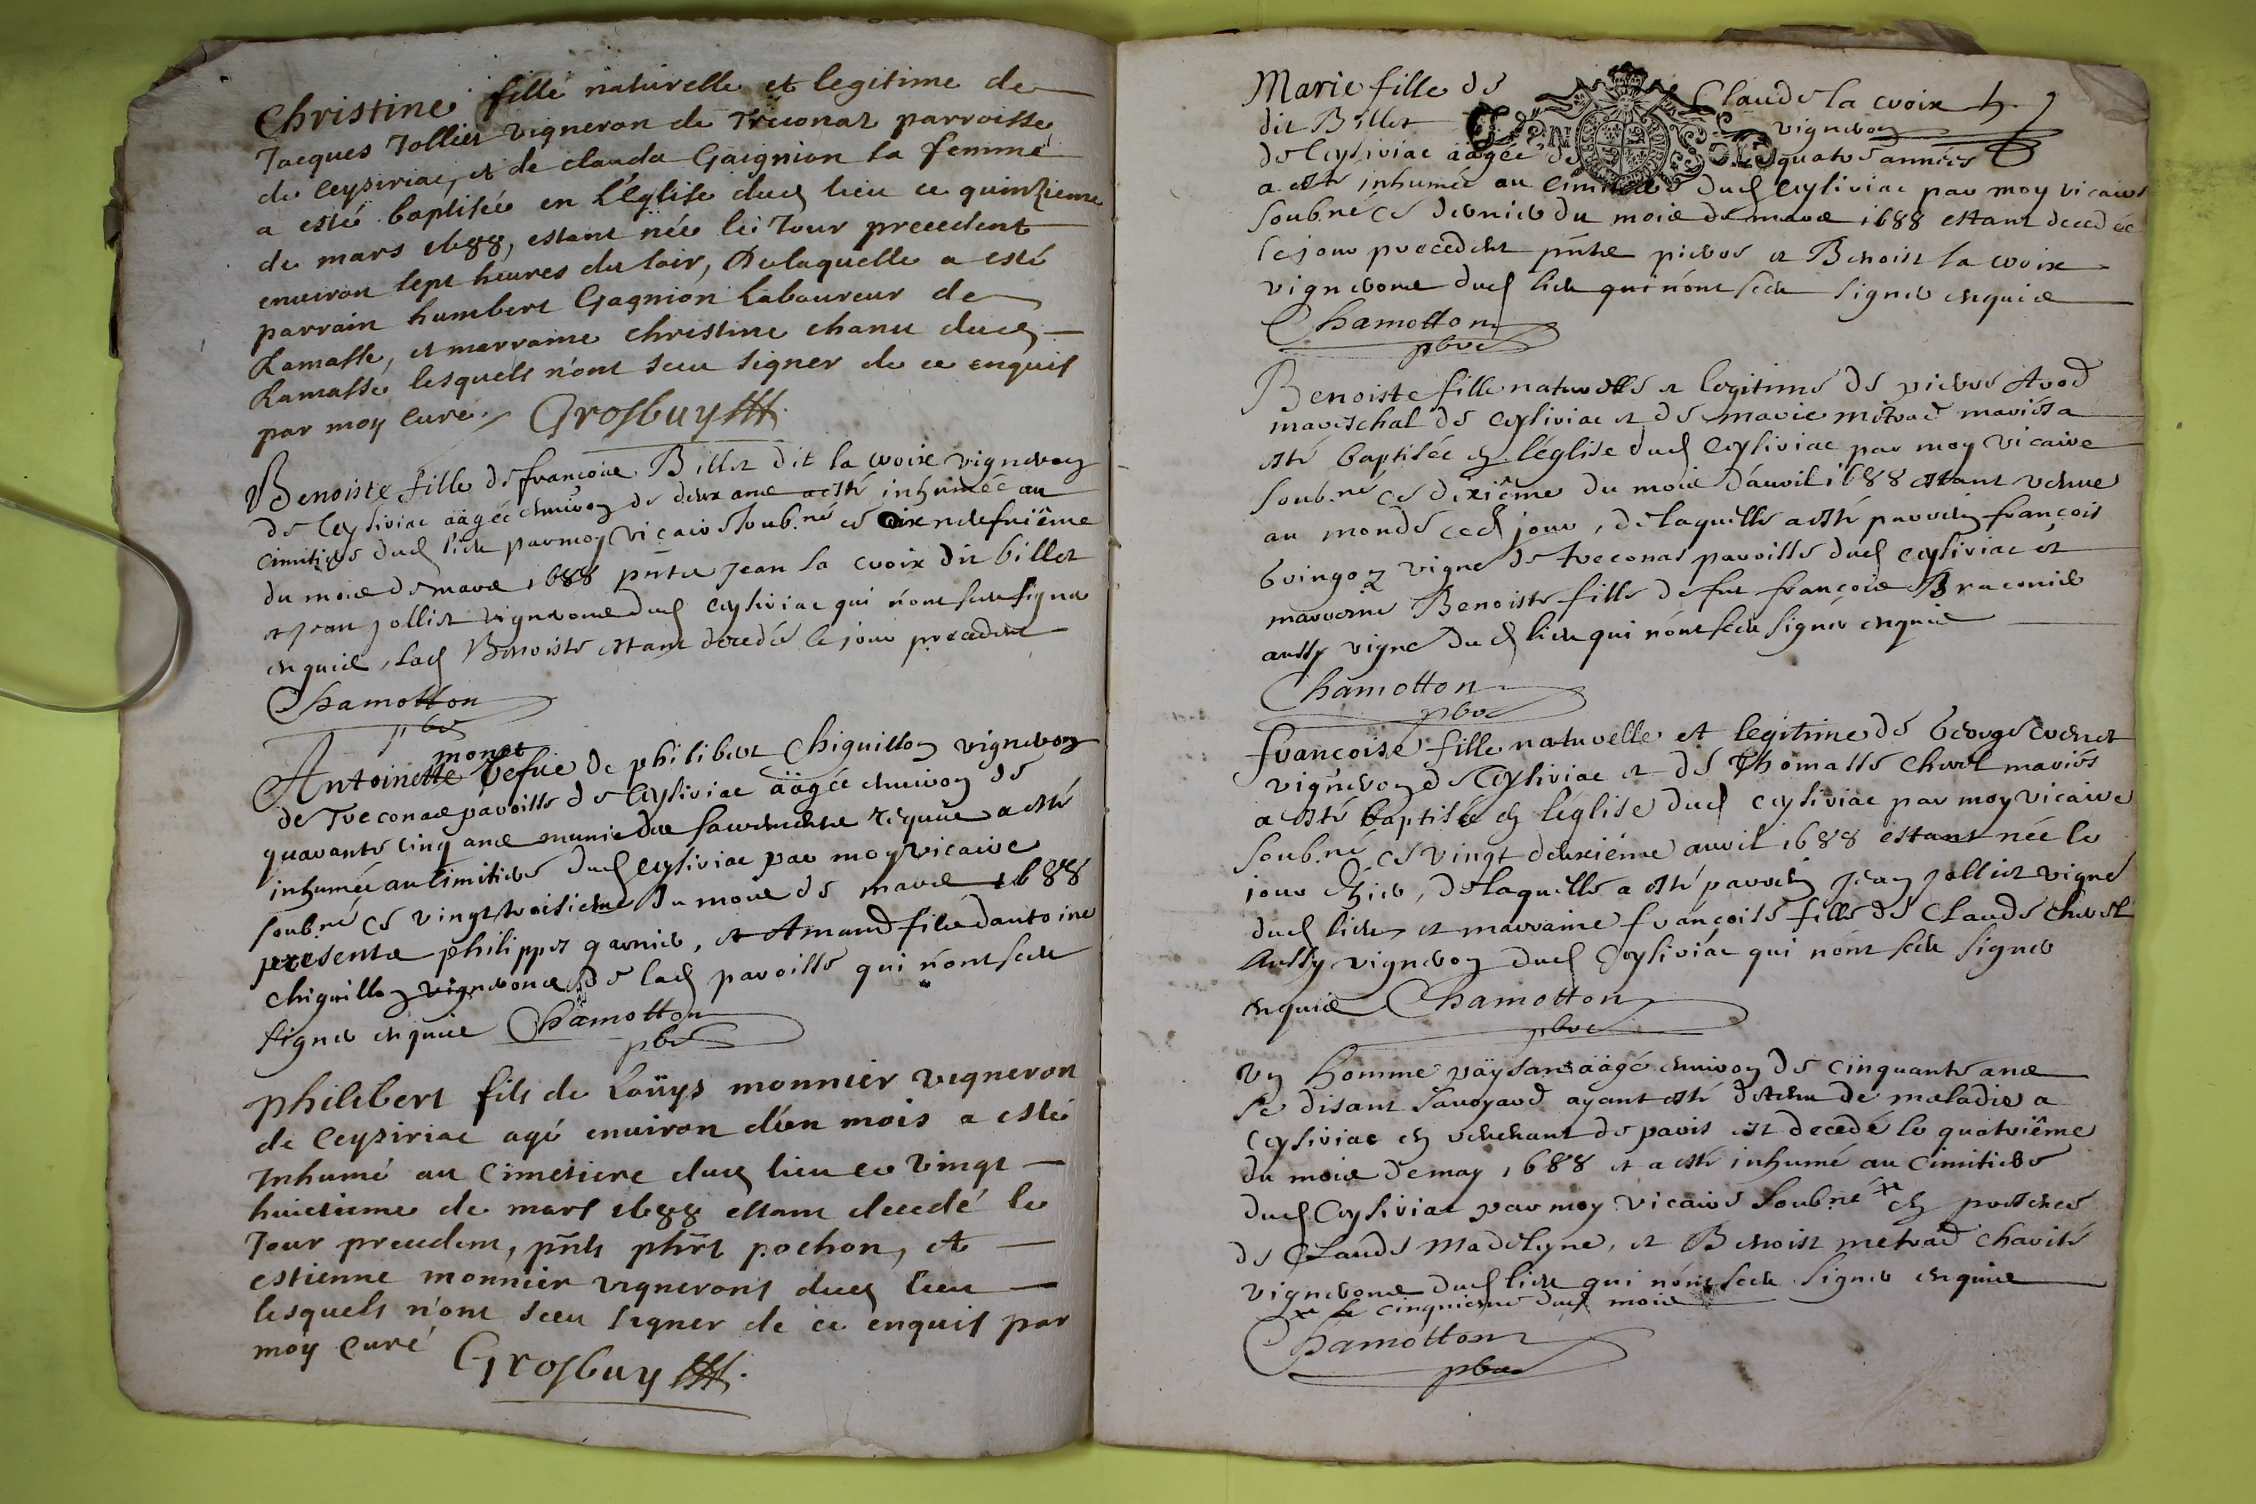 Christine fille naturelle et legitime de
Jacques Jollier vigneron de Treconaz parroisse
de Ceyziriac, et de clauda Gaignion sa femme
a esté baptisée en L'Eglise dud lieu ce quinzieme
de mars 1688, estant née le Jour precedent
environ sept heures du soir, De laquelle a esté
parrain humbert Gagnion Laboureur de
Ramasse, et marraine christine chanu dud
Ramasse lesquels n'ont sceu signer de ce enquis
par moy curé. Grosbuy
Benoiste fille de françois Billet dit la croix vigneron
de Ceysiriac äagée environ de deux ans a esté inhumée au
cimitiere dud lieu par moy vicaire soub.né ce dixneufuiême
du mois de mars 1688 pnts Jean la croix dit billet
et Jean Jolliet vignerons dud ceysiriac qui n'ont sceu signer
enquis, lad Benoiste estant decedée le jour precedent
Chamotton
pbre
monet
Antoinette vefue de philibert Chiguillon vigneron
de Treconas paroisse de Ceysiriac äagée environ de
quarante cinq ans munie des sacrements requis a esté
inhumée au cimitiere dud ceysiriac par moy vicaire
soub.né ce vingt troisieme du mois de mars 1688
presents philippes garnier, et Amand fils dantoine
chiguillon vignerons de lad paroisse qui n'ont sceu
signer enquis Chamotton
pbre
philibert fils de Loüys monnier vigneron
de Ceyziriac agé environ d'vn mois a esté
Inhumé au Cimetiere dud lieu ce vingt
huictieme de mars 1688 estant decedé le
Jour precedent, pnts phrt pochon, et
estienne monnier vignerons dud lieu
lesquels n'ont sceu signer de ce enquis par
moy Curé Grosbuy
Marie fille de Claude la croix
dit Billet vigneron
de Ceysiriac äagée de quatre années
a esté inhumée au cimitiere dud ceysiriac par moy vicaire
soub.né ce dernier du mois de mars 1688 estant decedée
le jour precedent pnts pierre et Benoist la croix
vignerons dud lieu qui n'ont sceu signer enquis
Chamotton
pbre
Benoiste fille naturelle et legitime de pierre Arod
mareschal de ceysiriac et de marie mitrad mariés a
esté baptisée en l'église dud ceysiriac par moy vicaire
soub.né ce dixiême du mois d'auril 1688 estant venue
au monde ced jour, de laquelle a esté parrein françois
bringon vigne de treconas paroisse dud ceysiriac et
marreine Benoiste fille de fut françois Braconier
aussy vigne dud lieu qui n'ont sceu signer enquis
Chamotton
pbre
françoise fille naturelle et legitime de George
vigneron de Ceysiriac et de Thomasse mariés
a esté baptisée en l'église dud ceysiriac par moy vicaire
soub.né ce vingt deuxiême auril 1688 estant née le
jour d'hier, de laquelle a esté parrein Jean Jolliet vigne
dud lieu, et marraine françoise fille de Claude
Aussy vigneron dud Ceysiriac qui n'ont sceu signer
enquis Chamotton
pbre
Vn homme päysant äagé environ de cinquante ans
se disant Sauoyard ayant esté detenu de maladie a
Ceysiriac en venant de paris est decedé le quatriême
du mois de may 1688 et a esté inhumé au cimitiere
dud Ceysiriac par moy vicaire soub.né x en presence
de Claude Madeleyne, et Benoist metrad charité
vignerons dud lieu qui n'ont sceu signer enquis
x le cinquieme dud mois
Chamotton
pbre